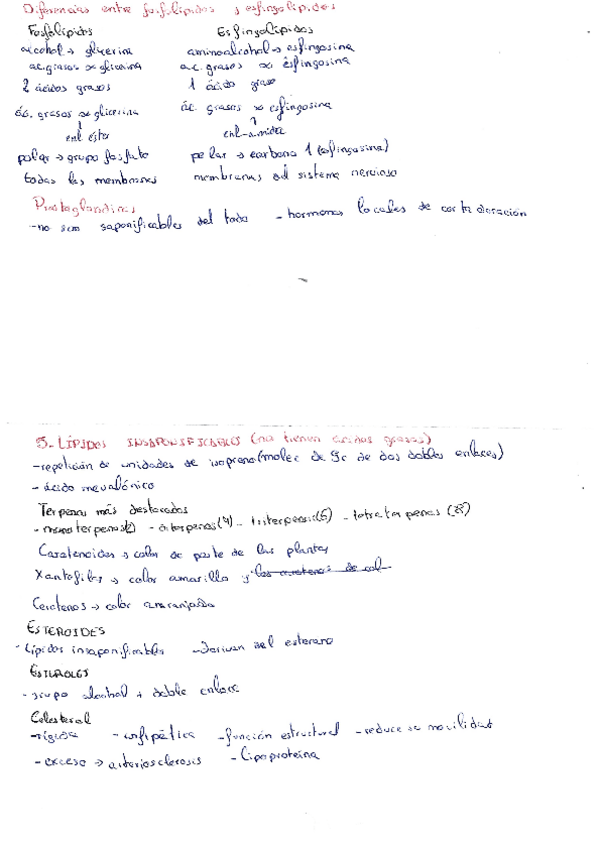 Diferencias entre fosfolípidos y esfingolípidos
Fosfolípidos Esfingolípidos
alcohol → glicerina aminoalcohol → esfingosina
ac.grasos ∝ glicerina ac. grasos ∝ esfingosina
2 ácidos grasos 1 ácido graso
ác. grasos ∝ glicerina ác. grasos ∝ esfingosina
enl éster enl-amida
polar → grupo fosfato polar → carbono 1 (esfingosina)
todas las membranas membranas del sistema nervioso
Prostaglandinas
-no son saponificables del todo - hormonas locales de corta duración
5. LÍPIDOS INSAPONIFICABLES (no tienen ácidos grasos)
-repetición de unidades de isopreno (molec de 5c de dos dobles enlaces)
- ácido mevalónico
Terpenos más destacados
- monoterpenos(2) - diterpenos(4) - triterpenos(6) - tetraterpenos (8)
Carotenoides → color de parte de las plantas
Xantofilas → color amarillo y los carotenos de col
Carotenos → color anaranjado
ESTEROIDES
- Lípidos insaponificables - derivan del esterano
ESTEROLES
- grupo alcohol + doble enlace
Colesterol
-rigidez - anfipática - función estructural - reduce se movilidad
- exceso → arteriosclerosis - Lipoproteína